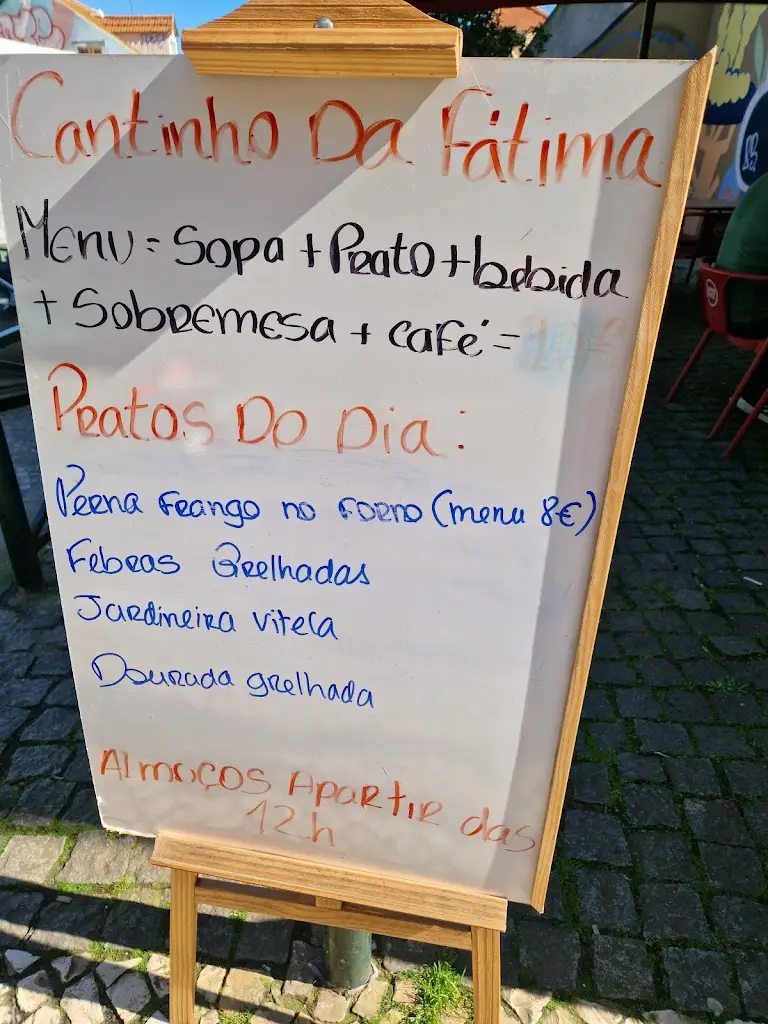 Cantinho Da Fátima
Menu = Sopa + Prato + bebida
+ Sobremesa + café =
Pratos Do Dia:
Perna frango no forno (menu 8€)
Febras Grelhadas
Jardineira vitela
Dourada grelhada
Almoços Apartir das
12h